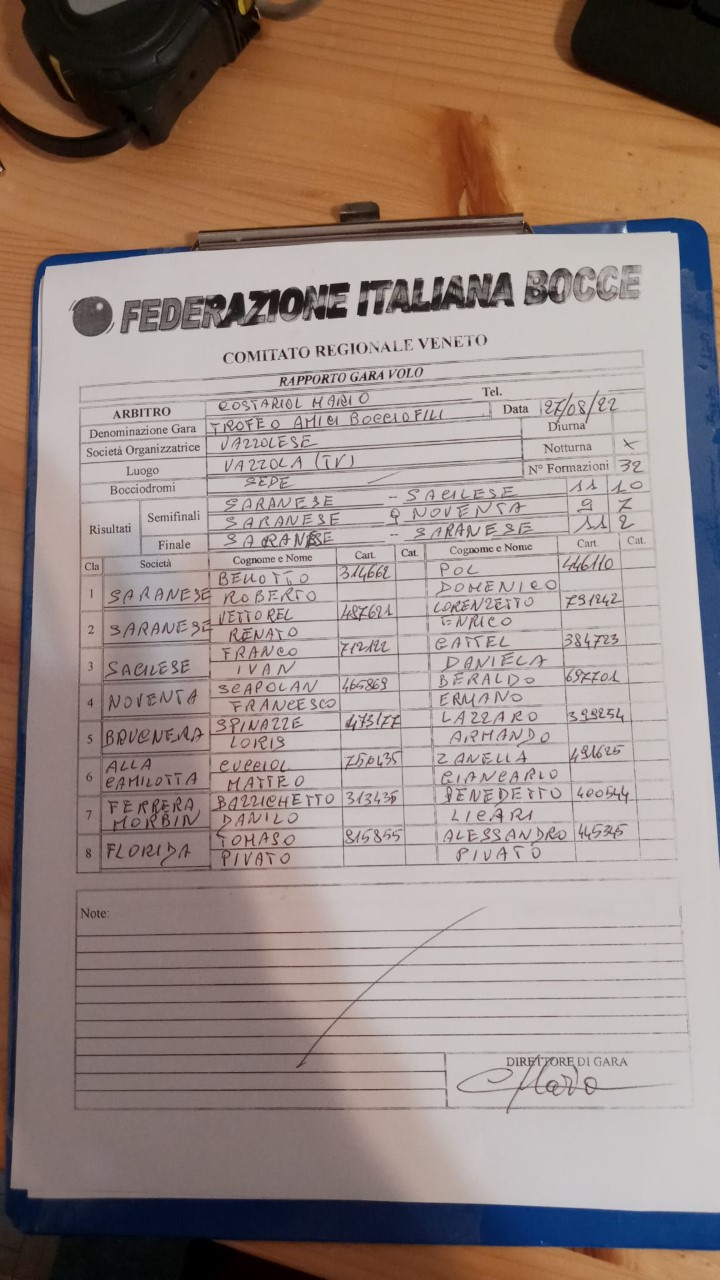 FEDERAZIONE ITALIANA BOCCE
COMITATO REGIONALE VENETO
RAPPORTO GARA VOLO
ARBITRO COSTARIOL MARIO Tel.
Denominazione Gara TROFEO AMICI BOCCIOFILI Data 27/08/22
Società Organizzatrice VAZZOLESE Diurna
Luogo VAZZOLA (TV) Notturna X
Bocciodromi SEDE N° Formazioni 32
Risultati Semifinali SARANESE - SACILESE 11 10
SARANESE NOVENTA 9 7
Finale SARANESE - SARANESE 11 2
Cla Società Cognome e Nome Cart. Cat. Cognome e Nome Cart. Cat.
1 SARANESE BELLOTTO ROBERTO 314662 POL DOMENICO 446110
2 SARANESE VETTOREL RENATO 487621 LORENZETTO ENRICO 791242
3 SACILESE FRANCO IVAN 712122 GATTEL DANIELA 384723
4 NOVENTA SCAPOLAN FRANCESCO 465869 BERALDO ERMANO 697701
5 BRUGNERA SPINAZZE LORIS 473177 LAZZARO ARMANDO 399254
6 ALLA CAMILOTTA CUCCIOL MATTEO ZANELLA GIANCARLO 491625
7 FERRERA MORBIN BAZZICHETTO DANILO 313435 BENEDETTO LICARI 400544
8 FLORIDA TOMASO PIVATO 815855 ALESSANDRO PIVATO 445345
Note:
DIRETTORE DI GARA